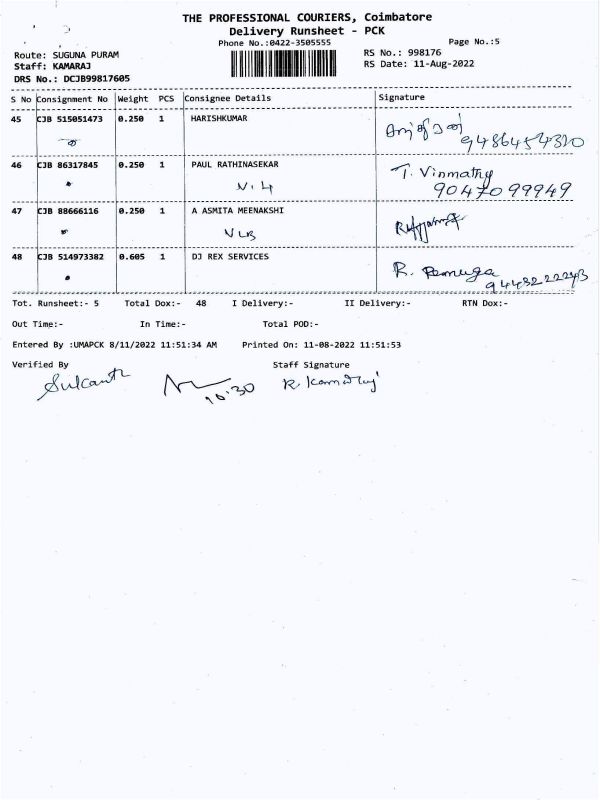 THE PROFESSIONAL COURIERS, Coimbatore
Delivery Runsheet - PCK
Phone No.:0422-3505555
Page No.:5
Route: SUGUNA PURAM
RS No.: 998176
Staff: KAMARAJ
RS Date: 11-Aug-2022
DRS No.: DCJB99817605
S No Consignment No Weight PCS Consignee Details Signature
45 CJB 515051473 0.250 1 HARISHKUMAR
9486454320
46 CJB 86317845 0.250 1 PAUL RATHINASEKAR T. Vinmathy
9047099949
47 CJB 88666116 0.250 1 A ASMITA MEENAKSHI
VLB
48 CJB 514973382 0.605 1 DJ REX SERVICES R. Remuga
9443222243
Tot. Runsheet:- 5 Total Dox:- 48 I Delivery:- II Delivery:- RTN Dox:-
Out Time:- In Time:- Total POD:-
Entered By :UMAPCK 8/11/2022 11:51:34 AM Printed On: 11-08-2022 11:51:53
Verified By Staff Signature
10:30 R. Kamaraj